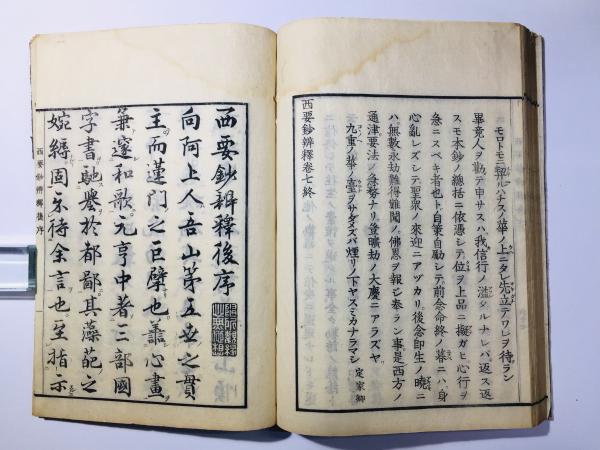 モロトモニ契ルハチスノ華ノ上ニタレ先立テワレヲ待ラン
畢竟人ヲ勸テ申サスハ我信行ノ濫タルナレバ返ス返
スモ本鈔ノ總括ニ依憑シテ位ヲ上品ニ擬ガヒ心行ヲ
急ニスベキ者也ト自策自勵シテ前念命終ノ暮ニハ身
心亂レズシテ聖眾ノ來迎ニアヅカリ後念即生ノ曉ニ
ハ無數永劫難得難聞ノ佛恩ヲ報シ奉ラン事是西方ノ
通津要法ノ急務ナリ豈曠劫ノ大慶ニアラズヤ
九重ノ華ノ臺ヲサダメズバ煙リノ下ヤスミカナラマシ 定家卿
西要鈔辨釋卷七終
西要鈔辨釋後序
向阿上人吾山第五世之貫
主而蓮門之巨擘也善心畫
兼邃和歌元亨中者三部國
字書馳譽於都鄙其藻葩之
婉縟固不待余言也至指示
西要鈔辨釋後序